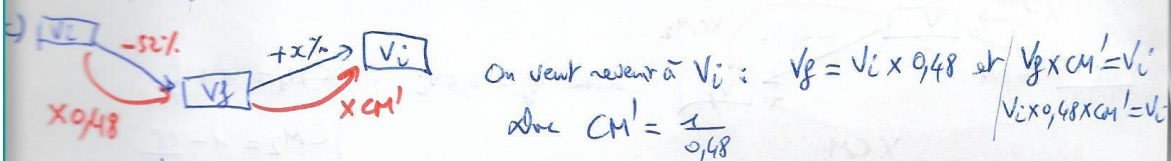 =) Vi -52% +x% Vi
Vf
×0,48 ×CM'
On veut revenir à Vi : Vf = Vi × 0,48 et / Vf × CM' = Vi
Vi × 0,48 × CM' = Vi
Donc CM' = 1/0,48